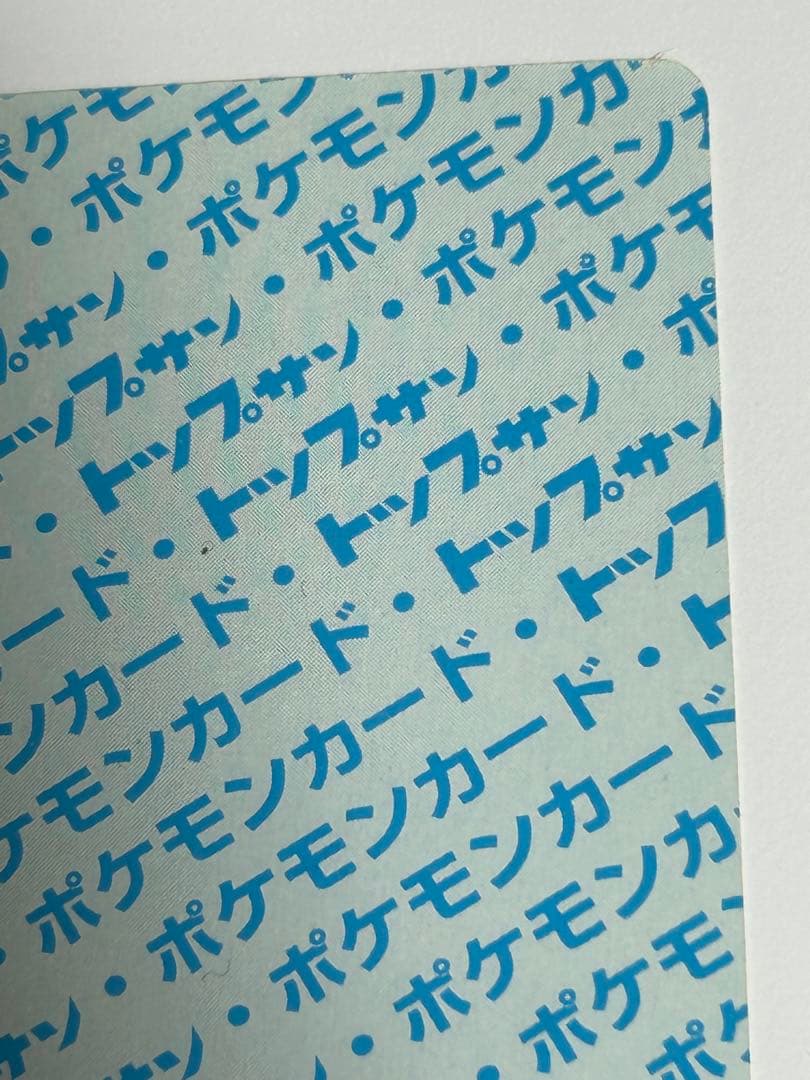 ポケモ
・ポケモン
プサン・ポケモンカ
トップサン・ポケモンカ
・トップサン・ポケモンカ
ード・トップサン・ポケモ
ンカード・トップサン・ポ
ケモンカード・トップサン
・ポケモンカード・トップ
サン・ポケモンカード・ト
サン・ポケモンカード
・ポケモンカ
・ポケモ
ポ